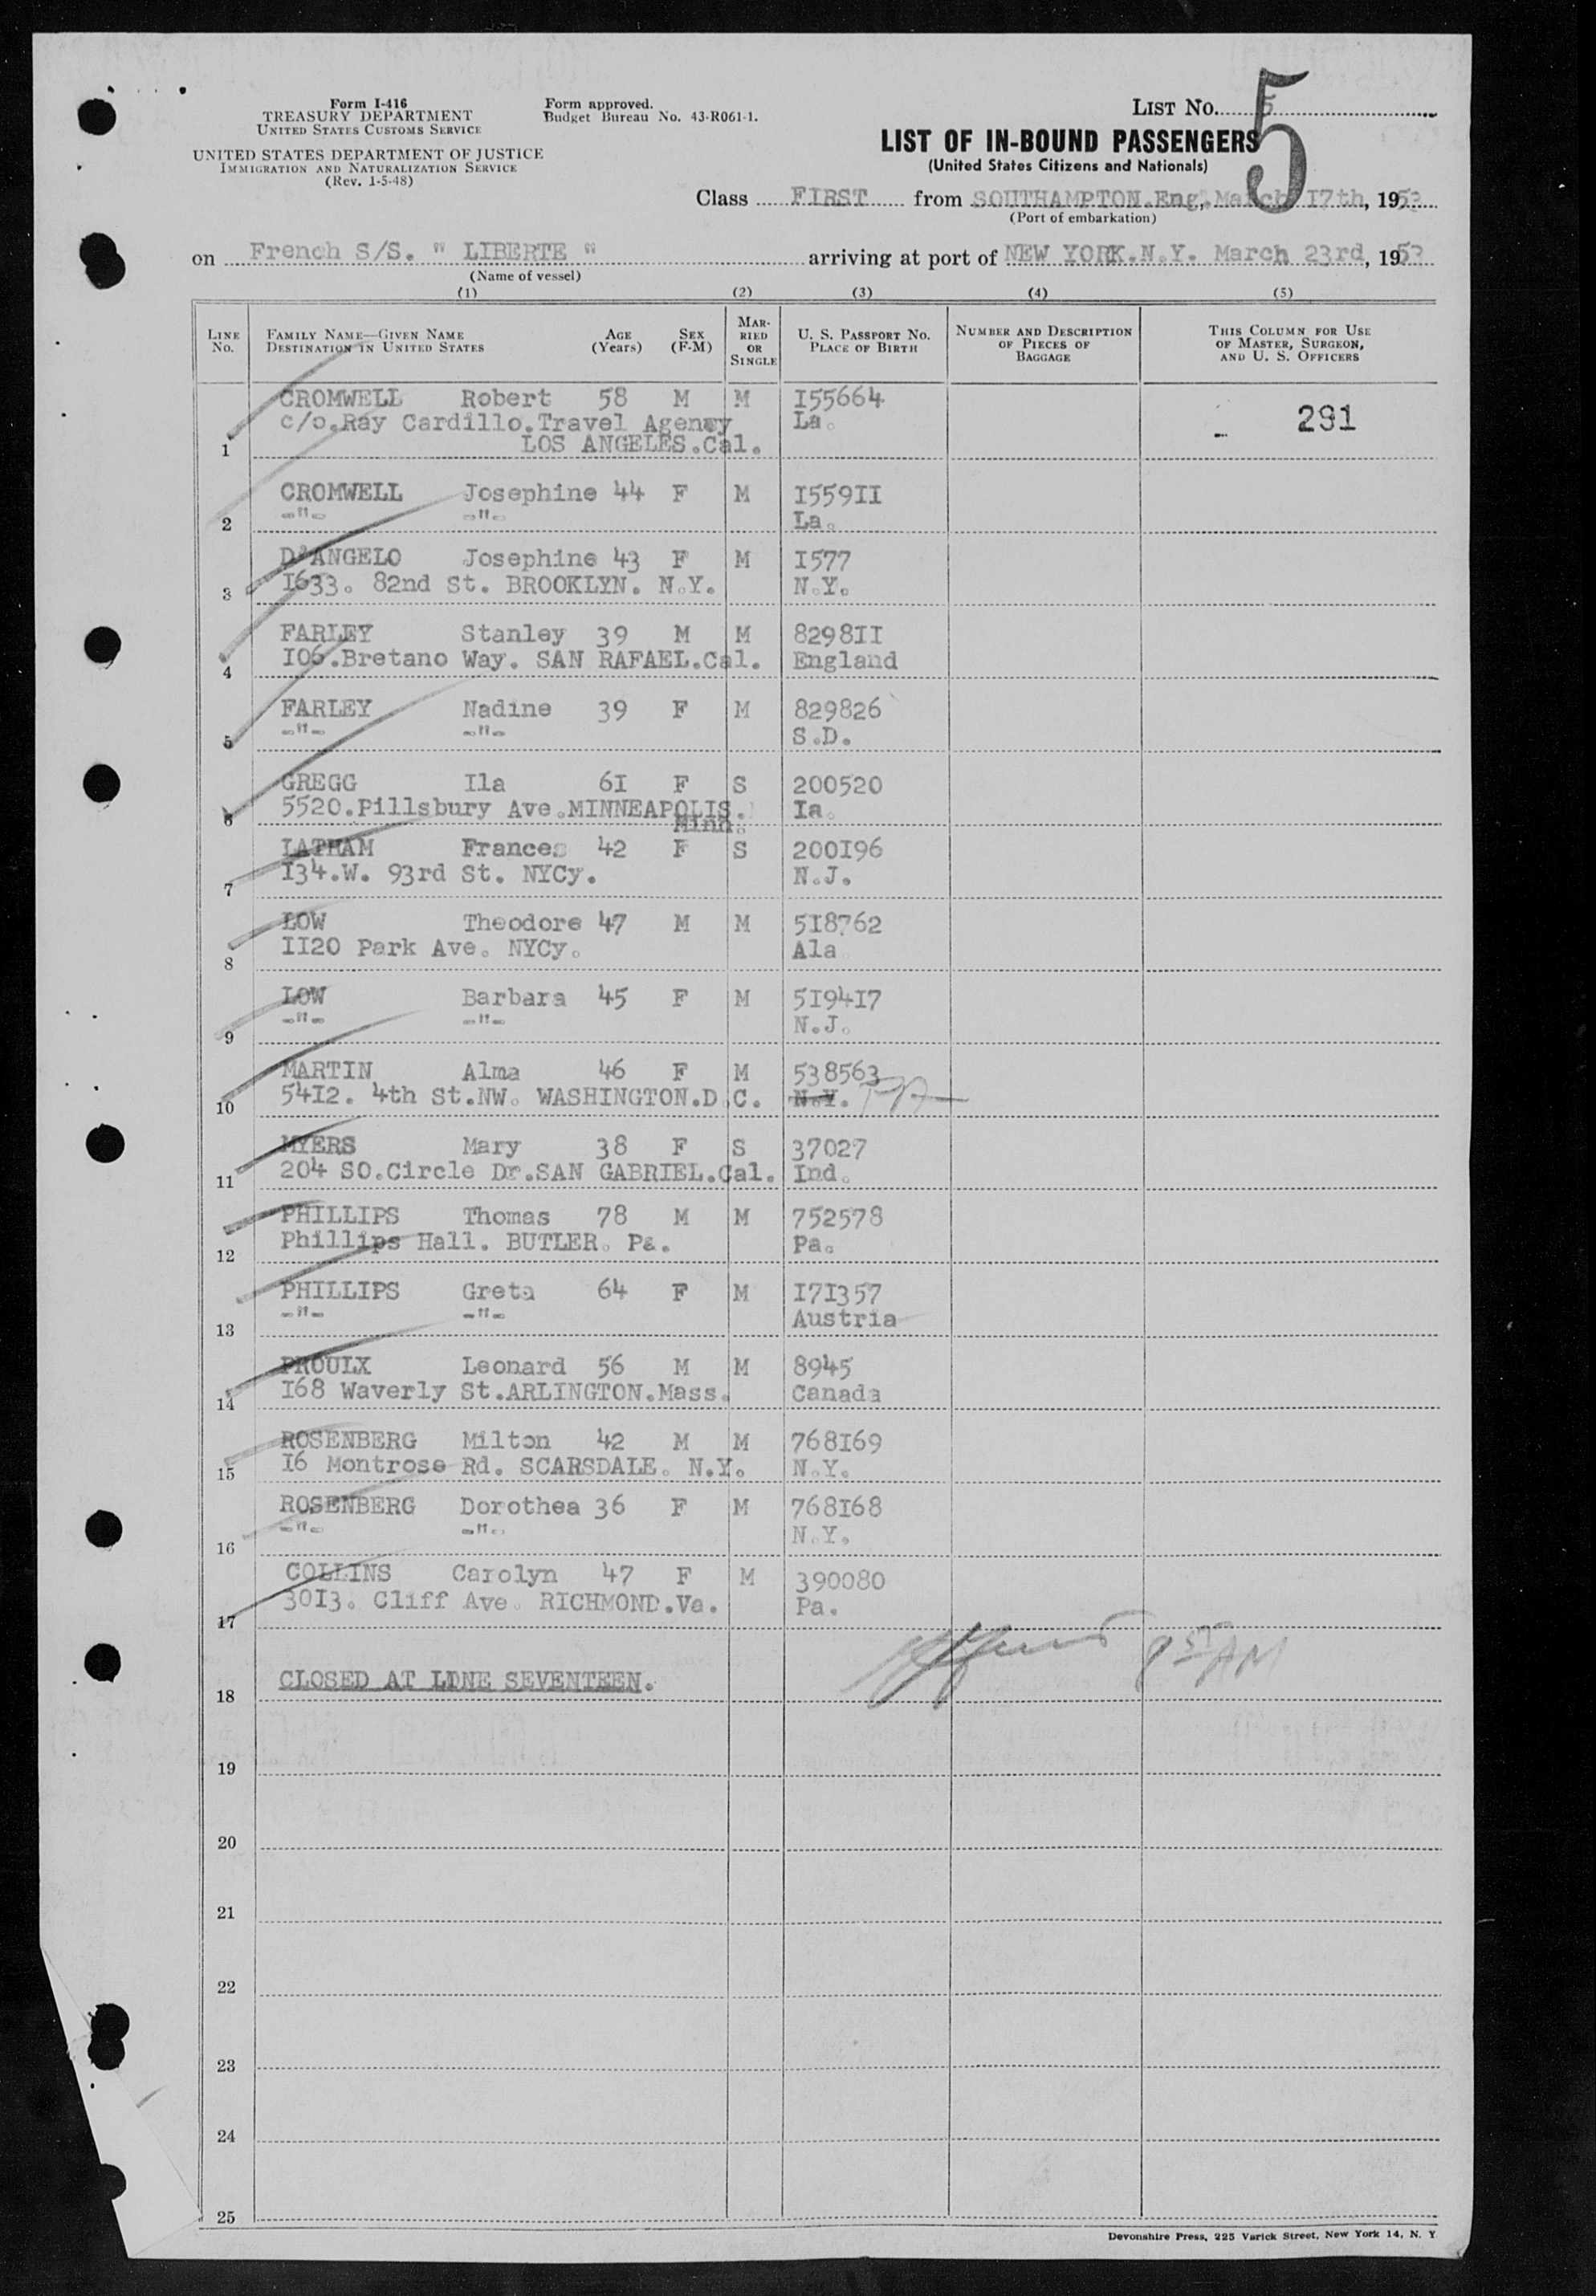 Form I-416
TREASURY DEPARTMENT
UNITED STATES CUSTOMS SERVICE
UNITED STATES DEPARTMENT OF JUSTICE
IMMIGRATION AND NATURALIZATION SERVICE
(Rev. 1-5-48)
Form approved.
Budget Bureau No. 43-R061-1.
LIST No. 5
5
LIST OF IN-BOUND PASSENGERS
(United States Citizens and Nationals)
Class FIRST from SOUTHAMPTON.Eng, March 17th, 1953
(Port of embarkation)
on French S/S. " LIBERTE " arriving at port of NEW YORK.N.Y. March 23rd, 1953
(Name of vessel)
(1) (2) (3) (4) (5)
LINE No. FAMILY NAME—GIVEN NAME DESTINATION IN UNITED STATES AGE (Years) SEX (F-M) MARRIED OR SINGLE U. S. PASSPORT NO. PLACE OF BIRTH NUMBER AND DESCRIPTION OF PIECES OF BAGGAGE THIS COLUMN FOR USE OF MASTER, SURGEON, AND U. S. OFFICERS
CROMWELL Robert 58 M M I55664
c/o.Ray Cardillo.Travel Agency La. 291
1 LOS ANGELES.Cal.
CROMWELL Josephine 44 F M I559II
2 -"- -"- La.
D'ANGELO Josephine 43 F M I577
3 I633. 82nd St. BROOKLYN. N.Y. N.Y.
FARLEY Stanley 39 M M 8298II
4 I06.Bretano Way. SAN RAFAEL.Cal. England
FARLEY Nadine 39 F M 829826
5 -"- -"- S.D.
GREGG Ila 6I F S 200520
6 5520.Pillsbury Ave.MINNEAPOLIS. Ia.
Minn.
LATHAM Frances 42 F S 200I96
7 I34.W. 93rd St. NYCy. N.J.
LOW Theodore 47 M M 5I8762
8 II20 Park Ave. NYCy. Ala
LOW Barbara 45 F M 5I94I7
9 -"- -"- N.J.
MARTIN Alma 46 F M 538563
10 54I2. 4th St.NW. WASHINGTON.D.C. N.Y. PA
MYERS Mary 38 F S 37027
11 204 SO.Circle Dr.SAN GABRIEL.Cal. Ind.
PHILLIPS Thomas 78 M M 752578
12 Phillips Hall. BUTLER. Pa. Pa.
PHILLIPS Greta 64 F M I7I357
13 -"- -"- Austria
PROULX Leonard 56 M M 8945
14 I68 Waverly St.ARLINGTON.Mass. Canada
ROSENBERG Milton 42 M M 768I69
15 I6 Montrose Rd. SCARSDALE. N.Y. N.Y.
ROSENBERG Dorothea 36 F M 768I68
16 -"- -"- N.Y.
COLLINS Carolyn 47 F M 390080
17 30I3. Cliff Ave. RICHMOND.Va. Pa.
18 CLOSED AT LINE SEVENTEEN. AM
19
20
21
22
23
24
25
Devonshire Press, 225 Varick Street, New York 14, N. Y.